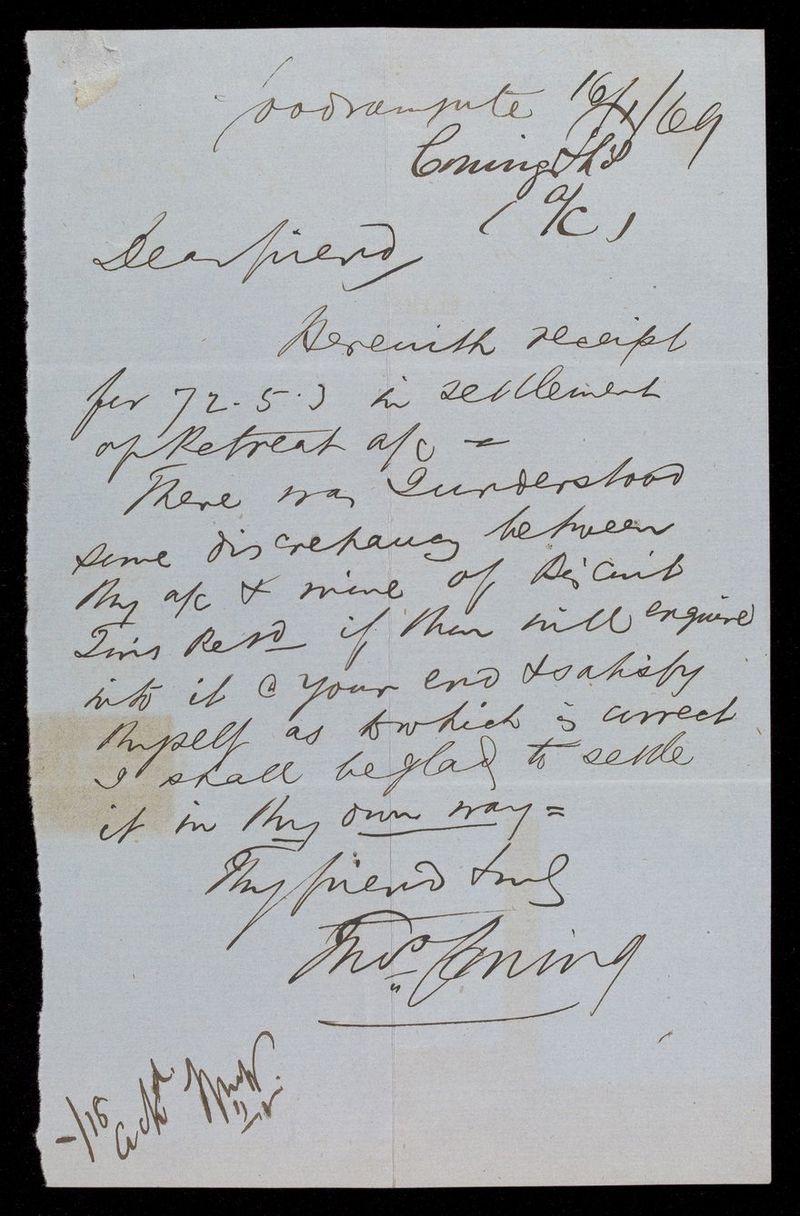 16/1/69
Coning Thos
( a/c )
Dear friend
Herewith receipt
for 72. 5. 3 in settlement
of Retreat a/c =
There was I understood
some discrepancy between
thy a/c & mine of Biscuit
Tins Retd if thou will enquire
into it @ your end & satisfy
thyself as to which is correct
I shall be glad to settle
it in thy own way =
Thy friend truly
Thos Coning
-/15
ackd.